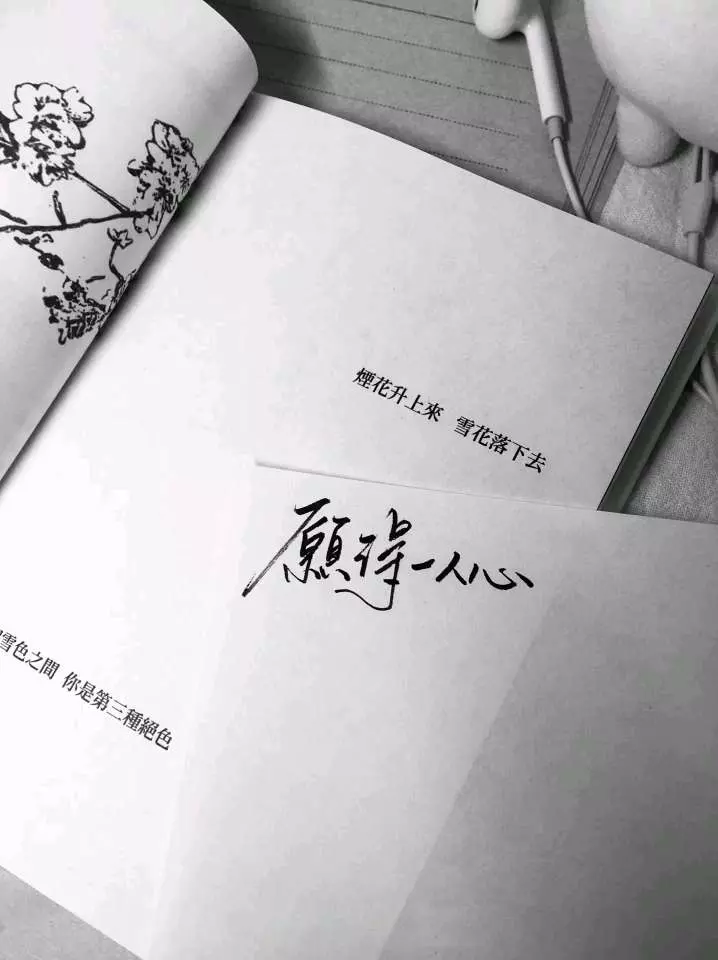 煙花升上來 雪花落下去
願得一人心
雪色之間 你是第三種絕色